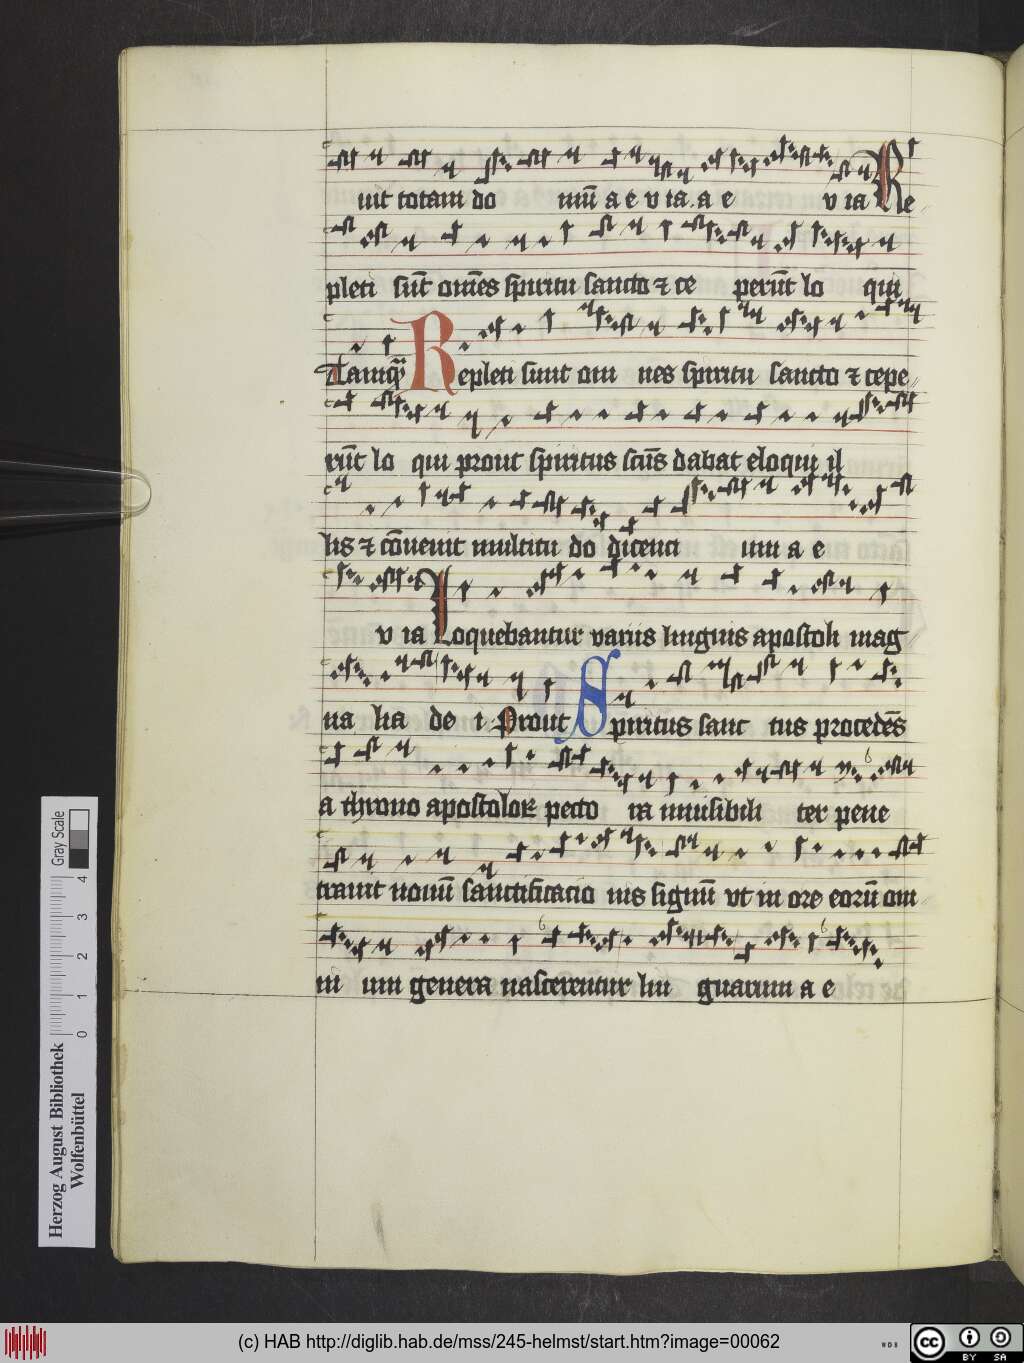 uit totam do mū a e v ia. a e v ia Re
pleti sūt om̄es spiritu sancto ⁊ ce perūt lo qui
Tamq̄ Repleti sunt om nes spiritu sancto ⁊ cepe
rūt lo qui prout spiritus scūs dabat eloqui il
lis ⁊ cōuenit multitu do dicenti um a e
v ia Loquebantur variis linguis apostoli mag
na lia de i Prout Spiritus sanc tus procedēs
a throno apostoloꝝ pecto ra inuisibili ter pene
trauit nouū sanctificacio nis signū vt in ore eorū om
ni um genera nascerentur lin guarum a e
Herzog August Bibliothek
Wolfenbüttel
0 1 2 3 4
Gray Scale
(c) HAB http://diglib.hab.de/mss/245-helmst/start.htm?image=00062
WDB
cc BY SA